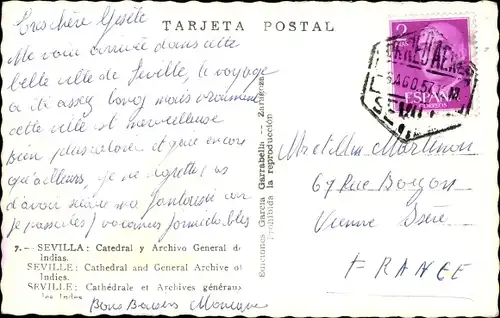 TARJETA POSTAL
Très chère Gisèle
Me voici arrivée dans cette
belle ville de Séville, le voyage
a été assez long mais vraiment
cette ville est merveilleuse
Bien plus encore
qu'ailleurs je ne regrette pas
d'avoir suivi ma fantaisie car
je passe les vacances formidables
7. - SEVILLA: Catedral y Archivo General de
Indias.
SEVILLE: Cathedral and General Archive of
Indies.
SEVILLE: Cathédrale et Archives généraux
les Indes
Bons Baisers Monique
Ediciones García Garrabella -- Zaragoza
Prohibida la reproducción
2
CORREO AEREO
AGO.57
SEVILLA
ESPAÑA
Mr et Mme Martinon
67 Rue
Vienne Isère
FRANCE